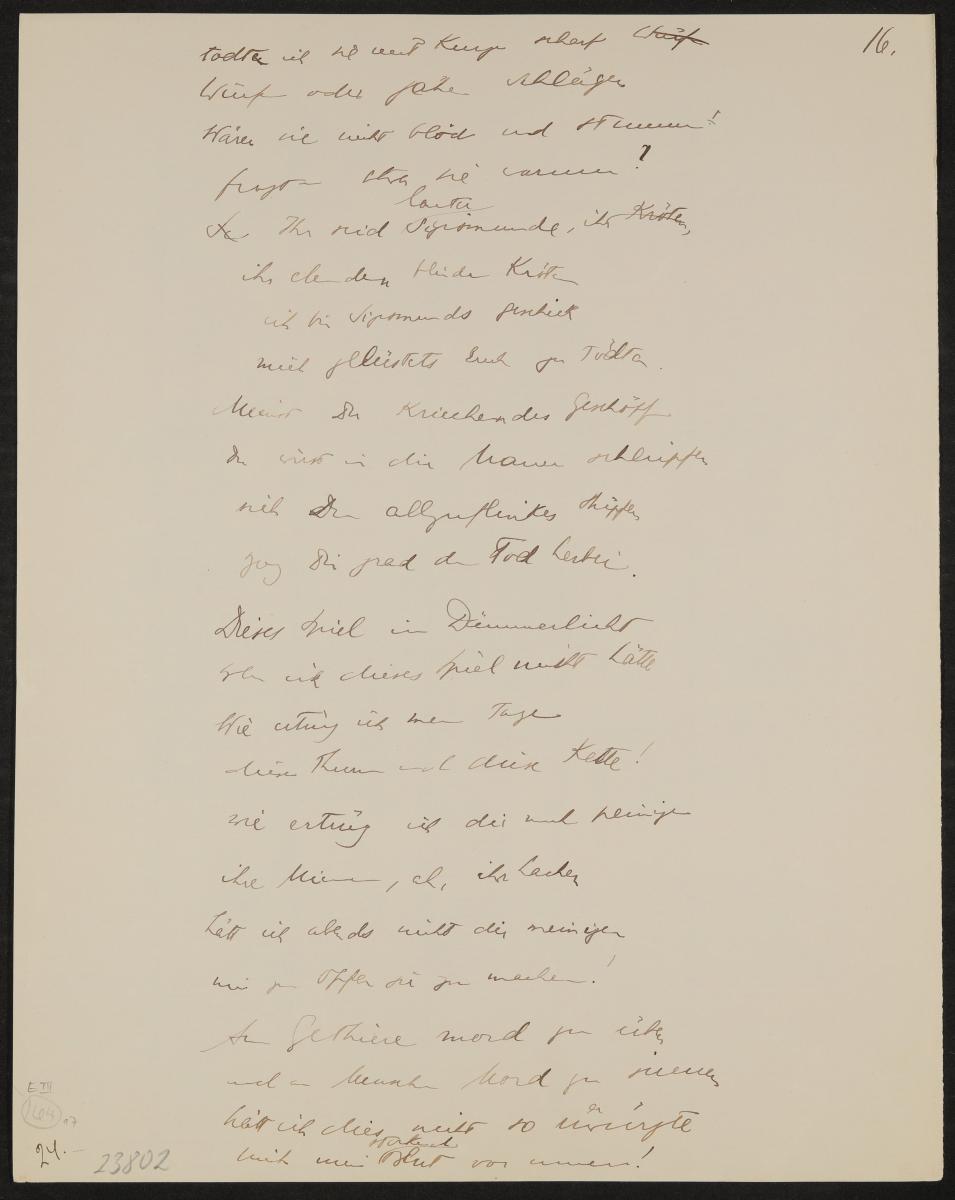 16.
tödten ich sie mit kurzem scharf Würfe
Würfen oder jähen Schlägen
Wären sie nicht blöd und stumm!
fragten sie warum?
lauter
Ihr seid Sigismunde, ihr Kröten,
ihr elenden blinden Kröten
ich bin Sigismunds Geschick
mich gelüstets Euch zu Tödten.
Meinst Du kriechendes Geschöpf
Du wirst in die Mauer schlüpfen
sieh Dein allzuflinkes Hüpfen
zog Dir grad den Tod herbei.
Dieses Spiel im Dämmerlicht
wenn ich dieses Spiel nicht hätte
Wie ertrüg ich meine Tage
diesen Thurm und diese Kette!
wie ertrüg ich die mich peinigen
ihre Mienen, ach, ihr Lachen
hätt ich abends nicht die meinigen
mir zu Opfern sie zu machen!
An Gethiere Mord zu üben
und an Menschen Mord zu sinnen
hätt ich dies nicht so erwürgte
stockend
mich mein Blut von innen!
E III
24.
23802